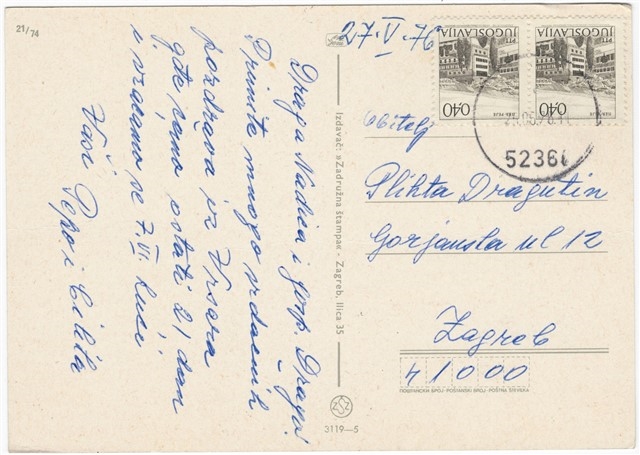 21/74
27·V·76
Draga Nadica i gosp. Dragaš
Primite mnogo srdačnih
pozdrava iz Vrsara
gdje ćemo ostati 21 dan
i vraćamo se 7.VI. kući.
Vaši Pepo i Cilita
Izdavač: »Zadružna štampa« - Zagreb, Ilica 35
3119—5
JUGOSLAVIJA
PTT
0,40
JUGOSLAVIJA
0,40
52366
Obitelj
Plihta Dragutin
Gorjanska ul 12
Zagreb
41000
ПОШТАНСКИ БРОЈ - POŠTANSKI BROJ - POŠTNA ŠTEVILKA